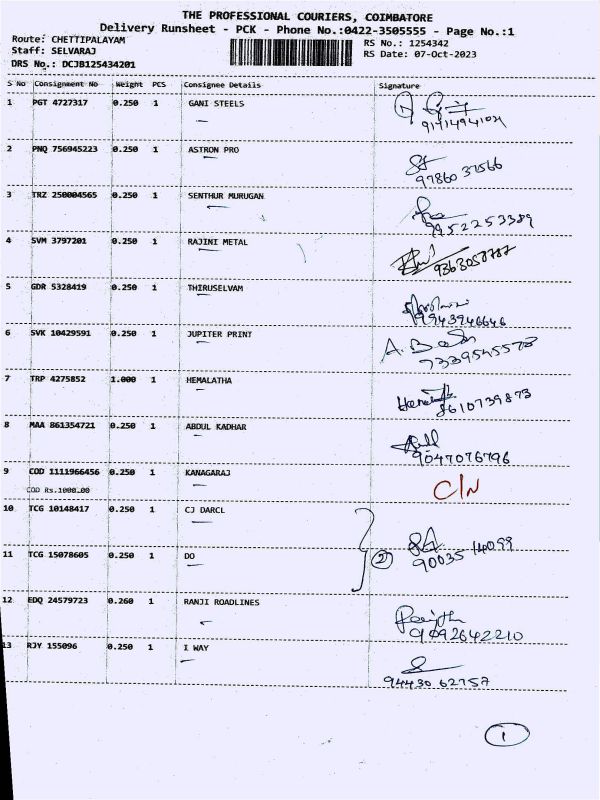 THE PROFESSIONAL COURIERS, COIMBATORE
Delivery Runsheet - PCK - Phone No.:0422-3505555 - Page No.:1
Route: CHETTIPALAYAM
Staff: SELVARAJ
DRS No.: DCJB125434201
RS No.: 1254342
RS Date: 07-Oct-2023
S No Consignment No Weight PCS Consignee Details Signature
1 PGT 4727317 0.250 1 GANI STEELS
2 PNQ 756945223 0.250 1 ASTRON PRO
9786037566
3 TRZ 250004565 0.250 1 SENTHUR MURUGAN
9952253389
4 SVM 3797201 0.250 1 RAJINI METAL
9363058787
5 GDR 5328419 0.250 1 THIRUSELVAM
9943946646
6 SVK 10429591 0.250 1 JUPITER PRINT
7339545578
7 TRP 4275852 1.000 1 HEMALATHA
8610739873
8 MAA 861354721 0.250 1 ABDUL KADHAR
9047076796
9 COD 1111966456 0.250 1 KANAGARAJ C/N
COD Rs.1000.00
10 TCG 10148417 0.250 1 CJ DARCL
11 TCG 15078605 0.250 1 DO 2 90035 14099
12 EDQ 24579723 0.260 1 RANJI ROADLINES
9092642210
13 RJY 155096 0.250 1 I WAY
94430 62757
1